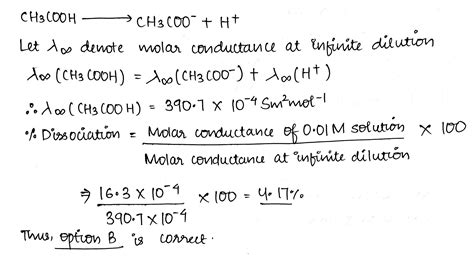 CH3COOH ⟶ CH3COO⁻ + H⁺
Let λ∞ denote molar conductance at infinite dilution
λ∞ (CH3COOH) = λ∞ (CH3COO⁻) + λ∞ (H⁺)
∴ λ∞ (CH3COOH) = 390.7 × 10⁻⁴ Sm² mol⁻¹
% Dissociation = Molar conductance of 0.01M solution × 100
Molar conductance at infinite dilution
⇒ 16.3 × 10⁻⁴ × 100 = 4.17%
390.7 × 10⁻⁴
Thus, option B is correct.